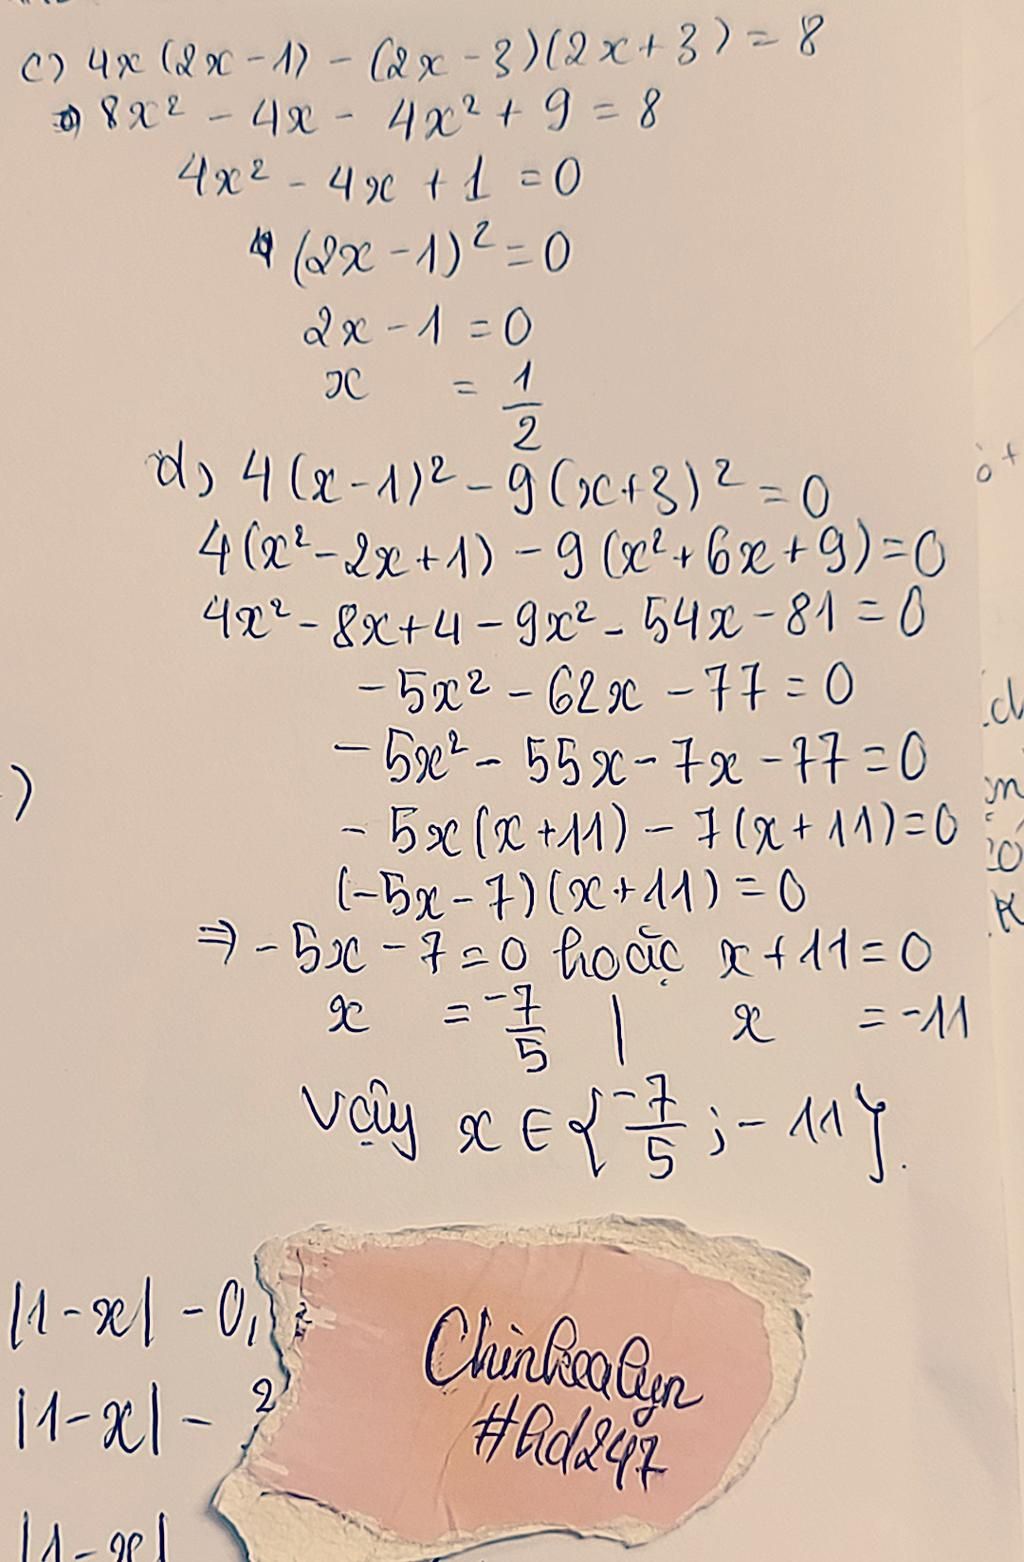 c) 4x(2x-1) - (2x-3)(2x+3) = 8
8x² - 4x - 4x² + 9 = 8
4x² - 4x + 1 = 0
(2x-1)² = 0
2x - 1 = 0
x = 1/2
d) 4(x-1)² - 9(x+3)² = 0
4(x²-2x+1) - 9(x²+6x+9) = 0
4x² - 8x + 4 - 9x² - 54x - 81 = 0
-5x² - 62x - 77 = 0
-5x² - 55x - 7x - 77 = 0
-5x(x+11) - 7(x+11) = 0
(-5x-7)(x+11) = 0
⇒ -5x - 7 = 0 hoặc x + 11 = 0
x = -7/5 | x = -11
Vậy x ∈ {-7/5; -11}.
|1-x| - 0,
|1-x| - 2
|1-x|
#hd247